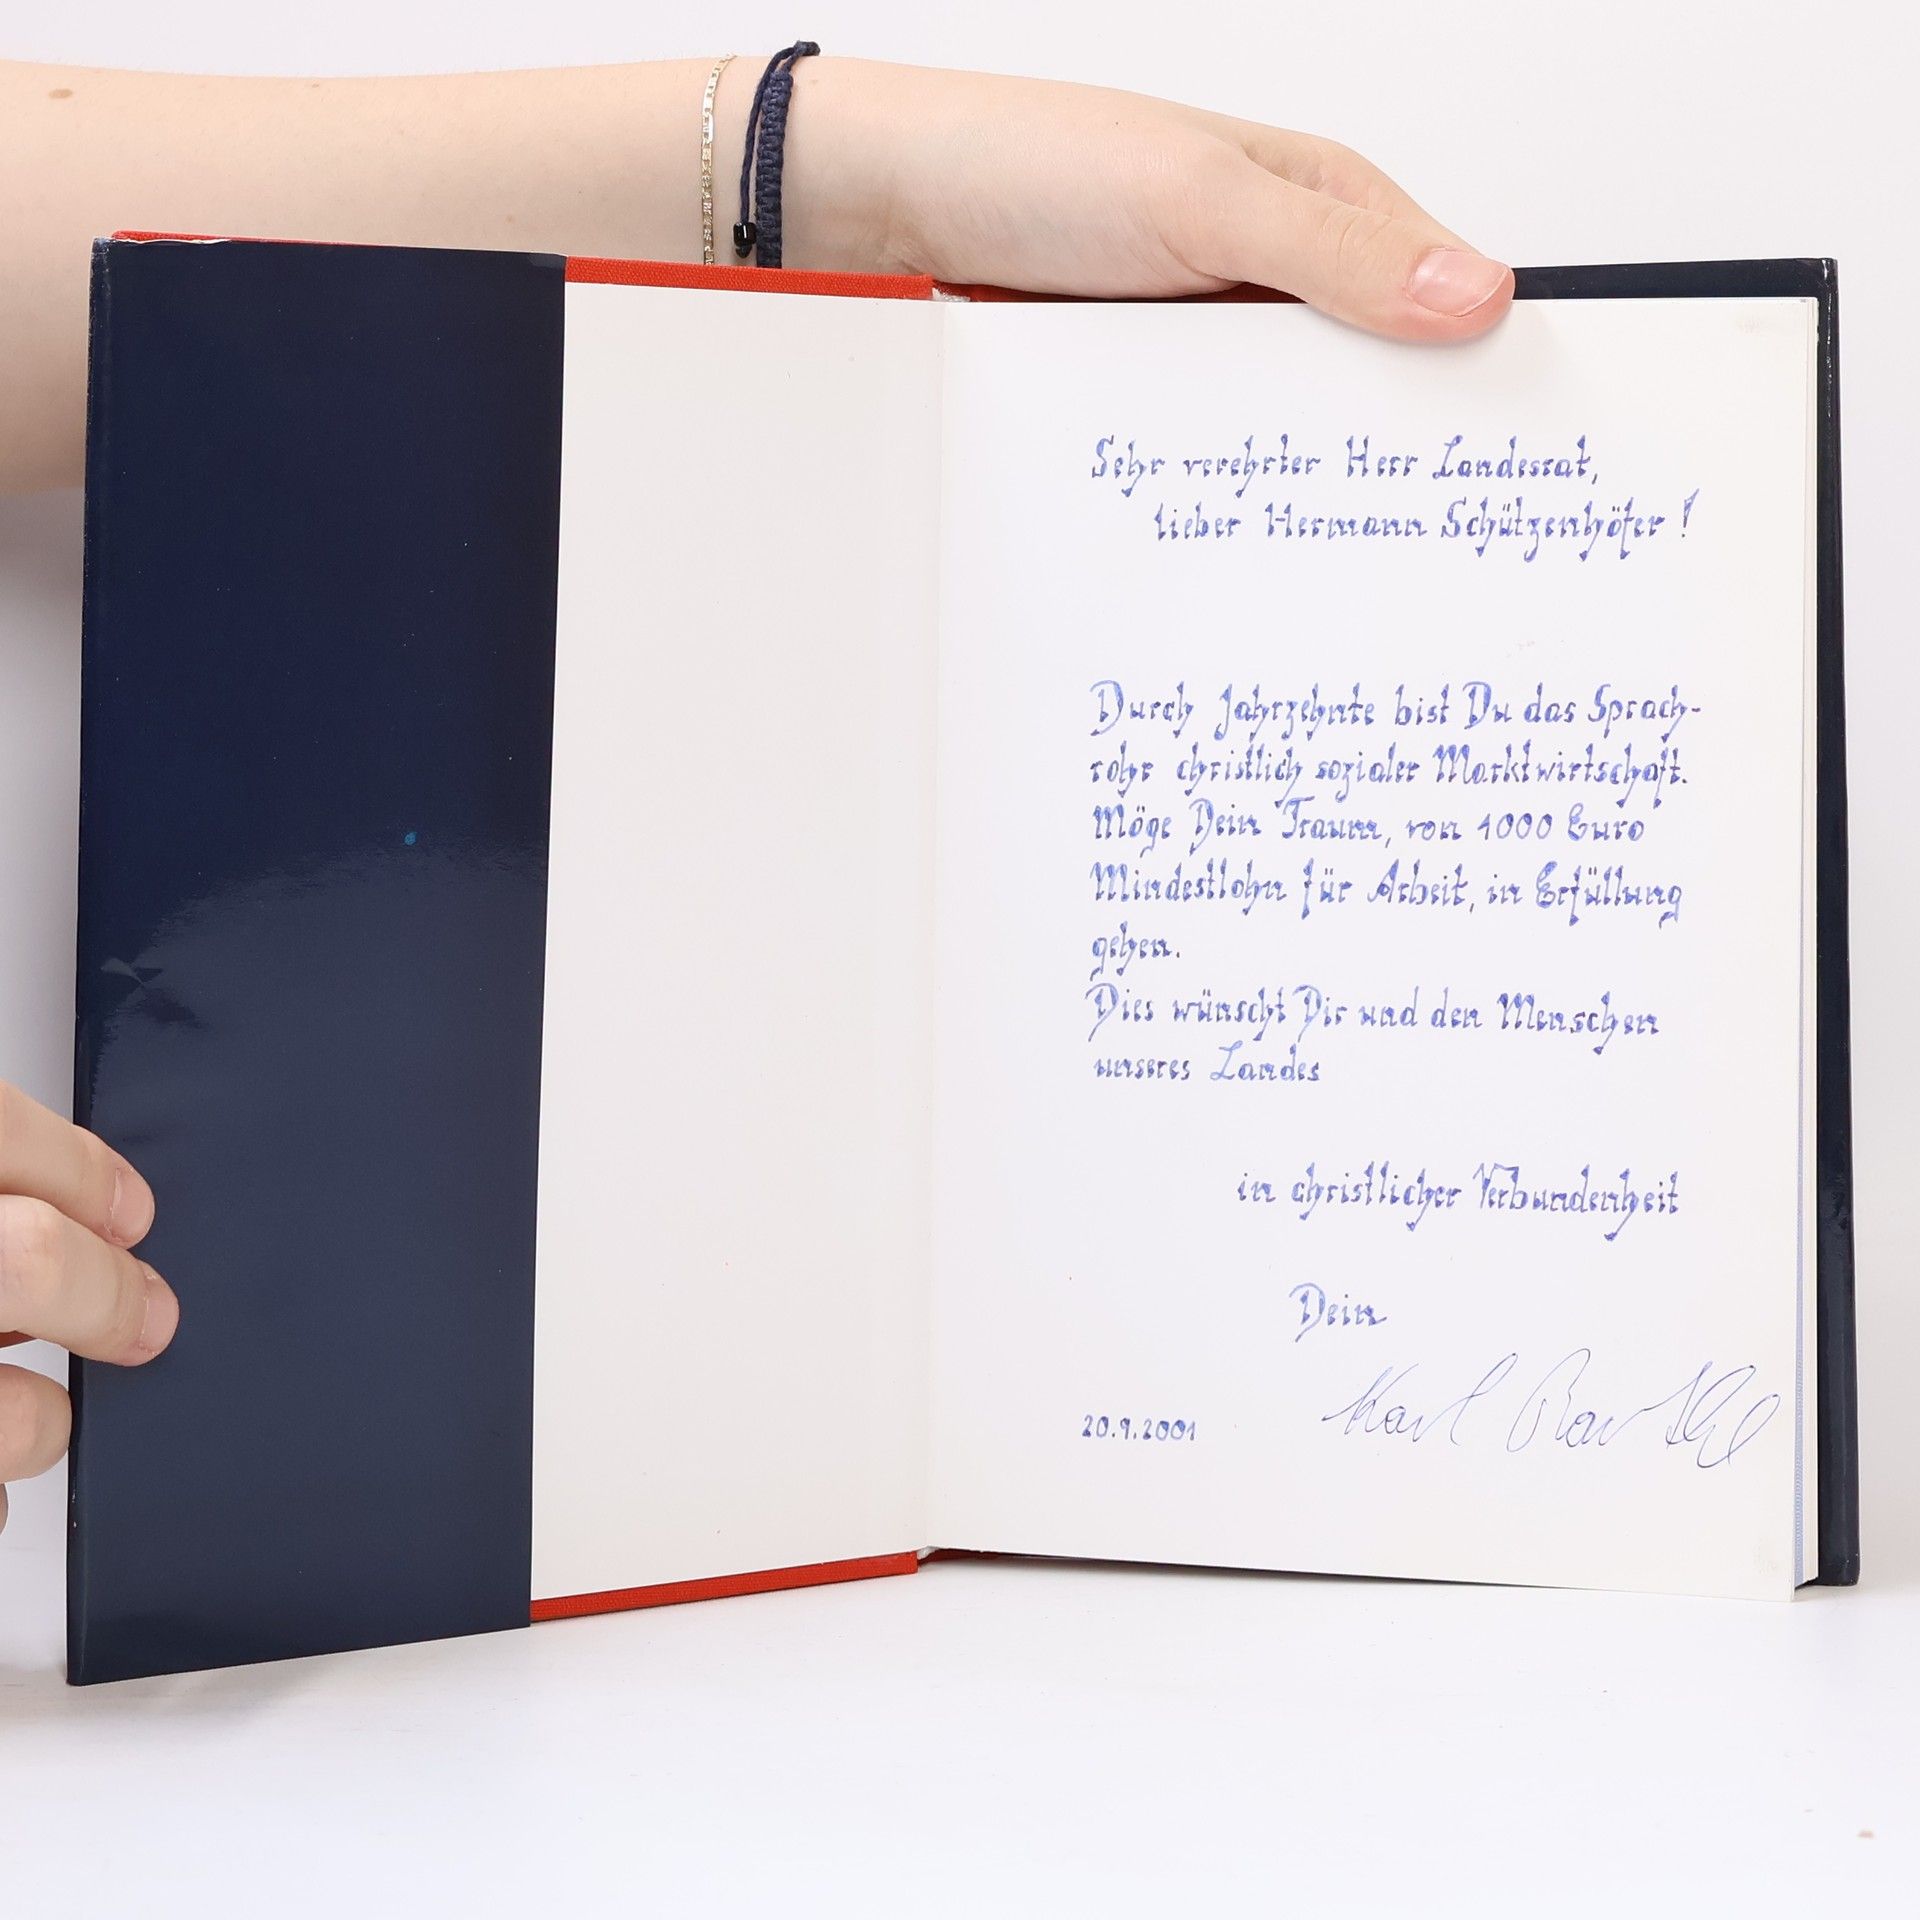 Sehr verehrter Herr Landesrat,
lieber Hermann Schützenhöfer!
Durch Jahrzehnte bist Du das Sprach-
rohr christlich sozialer Marktwirtschaft.
Möge Dein Traum, von 1000 Euro
Mindestlohn für Arbeit, in Erfüllung
gehen.
Dies wünscht Dir und den Menschen
unseres Landes
in christlicher Verbundenheit
Dein
Karl
20.9.2001